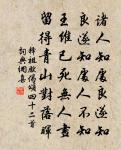 諸人知處良遂知
良遂知處人不知
王維已死無人畫
留得青山對落暉
釋祖欽偈頌四十二首